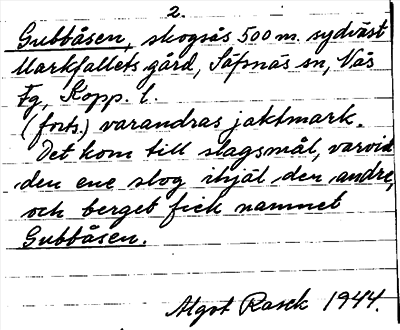 2.
Gubbåsen, skogsås 500 m. sydväst
Markfallets gård, Säfsnäs sn, Näs
Fg, Kopp. l.
(forts.) varandras jaktmark.
Det kom till slagsmål, varvid
den ene slog ihjäl den andre,
och berget fick namnet
Gubbåsen.
Algot Rasck 1944.